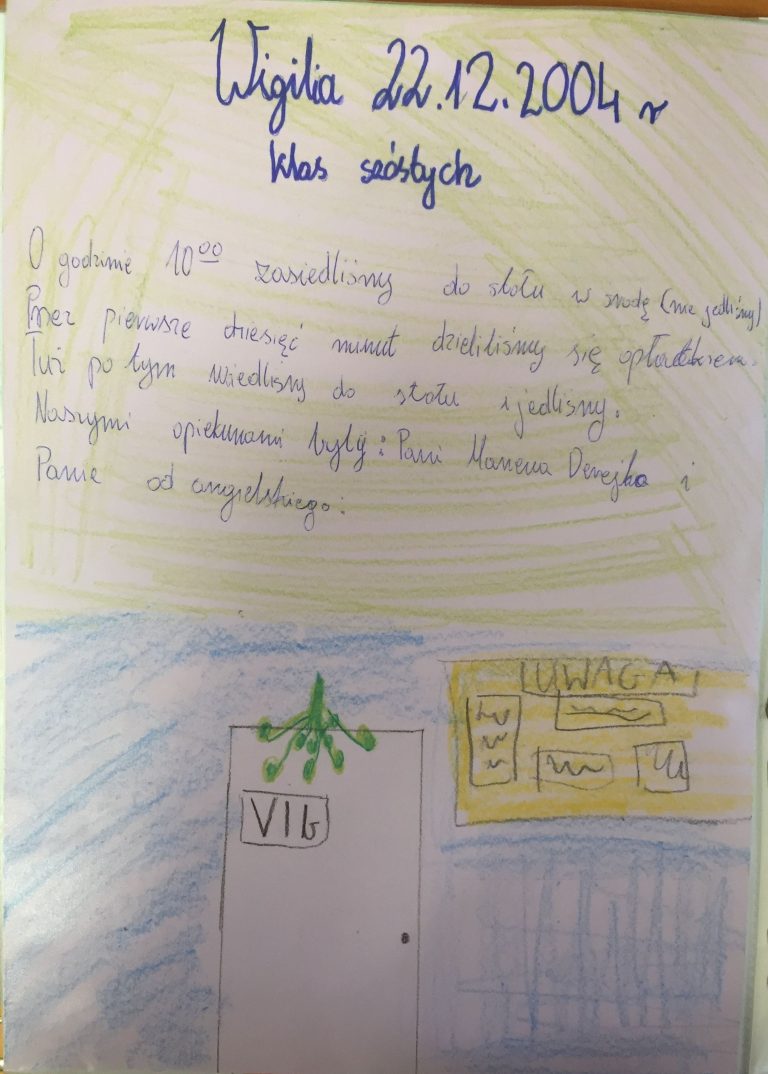 Wigilia 22.12.2004 r
klas szóstych
O godzinie 10⁰⁰ zasiedliśmy do stołu w środę (nie jedliśmy)
Przez pierwsze dziesięć minut dzieliliśmy się opłatkiem.
Tuż po tym usiedliśmy do stołu i jedliśmy.
Naszymi opiekunami były: Pani Derejko i
Panie od angielskiego.
UWAGA
VIb